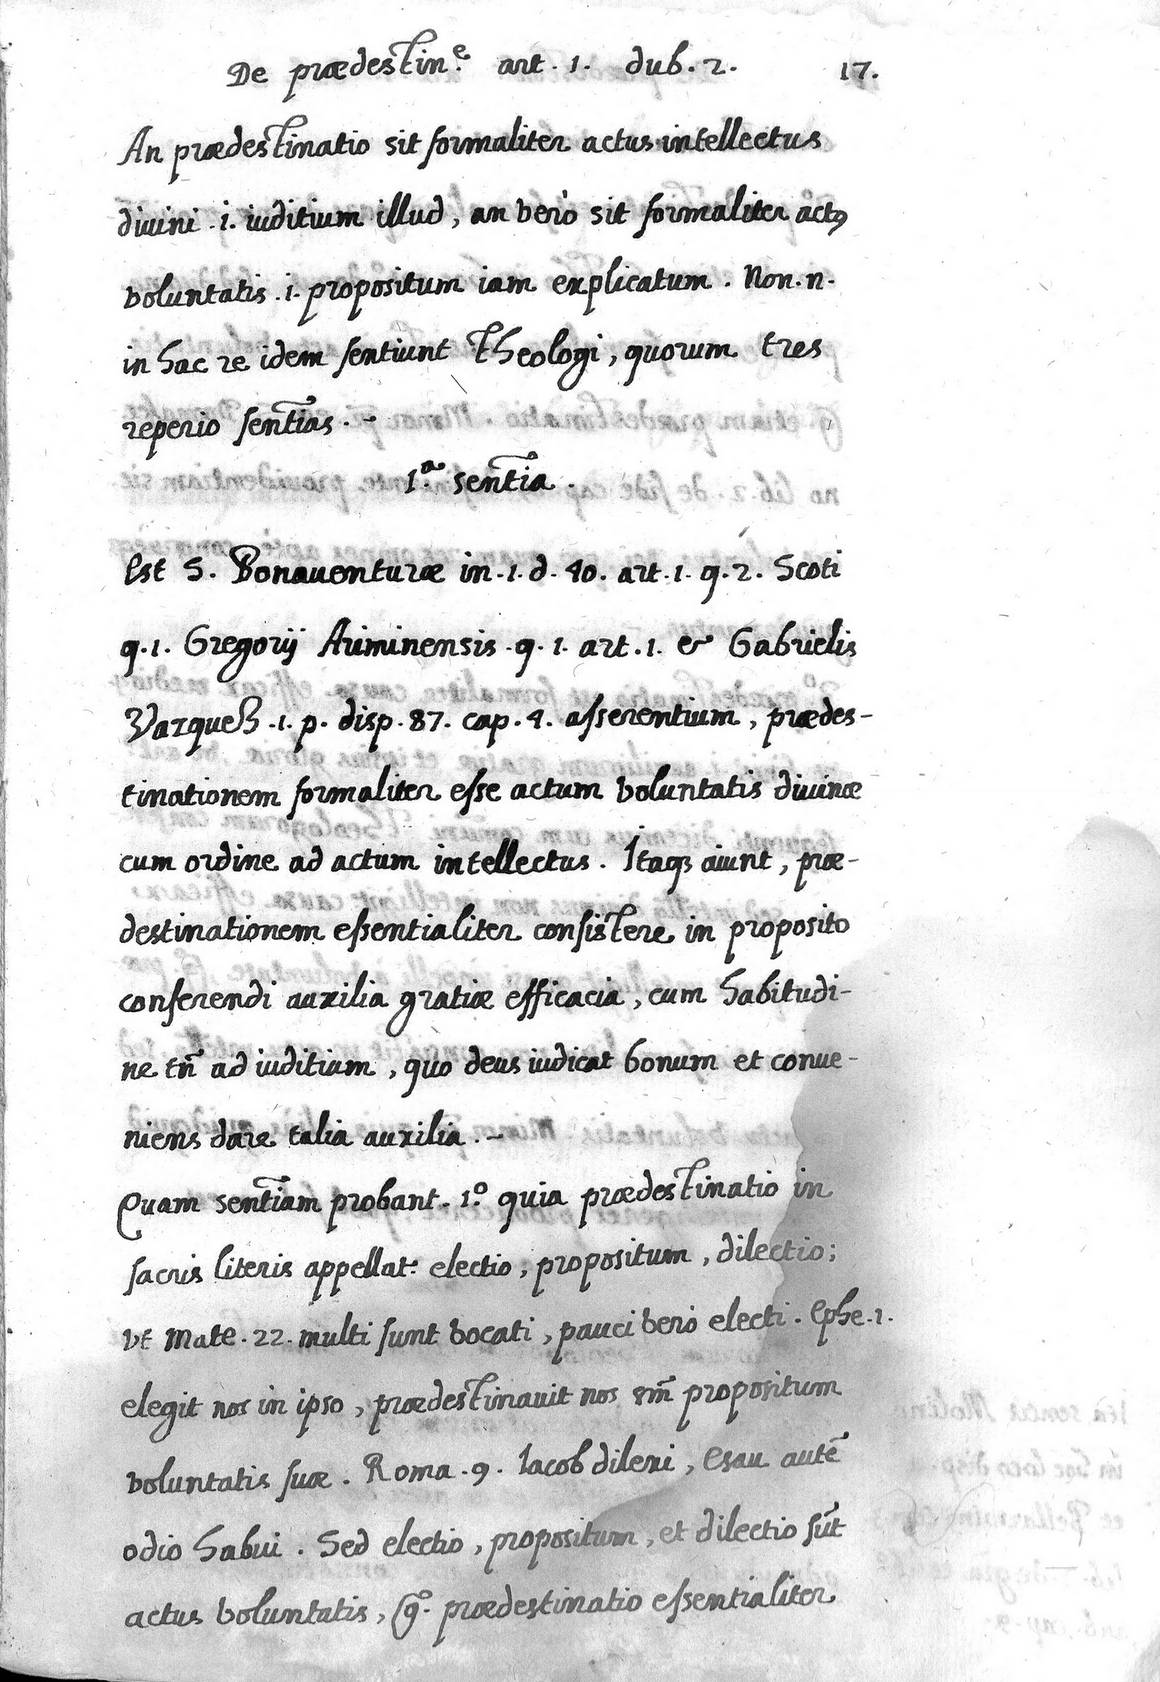 De prædestin.e art. 1. dub. 2. 17.
An prædestinatio sit formaliter actus intellectus
diuini .i. iuditium illud, an verò sit formaliter actꝰ
voluntatis .i. propositum iam explicatum. Non. n.
in hac re idem sentiunt Theologi, quorum tres
reperio senti͠as. ~
1.a senti͠a.
Est S. Bonauenturæ in .1. d. 40. art. 1. q. 2. Scoti
q. 1. Gregorij Ariminensis .q. 1. art. 1. & Gabrielis
Vazquez .1. p. disp. 87. cap. 4. asserentium, prædes-
tinationem formaliter esse actum voluntatis diuinæ
cum ordine ad actum intellectus. Itaqȝ aiunt, præ-
destinationem essentialiter consistere in proposito
conferendi auxilia gratiæ efficacia, cum habitudi-
ne tñ ad iuditium, quo deus iudicat bonum et conue-
niens dare talia auxilia. ~
Quam senti͠am probant. 1.o quia prædestinatio in
sacris literis appellat.r electio, propositum, dilectio;
vt Mate. 22. multi sunt vocati, pauci verò electi. Ephe. 1.
elegit nos in ipso, prædestinauit nos sm̃ propositum
voluntatis suæ. Roma. 9. Iacob dilexi, Esau autẽ
odio habui. Sed electio, propositum, et dilectio sũt
actus voluntatis, g.o prædestinatio essentialiter